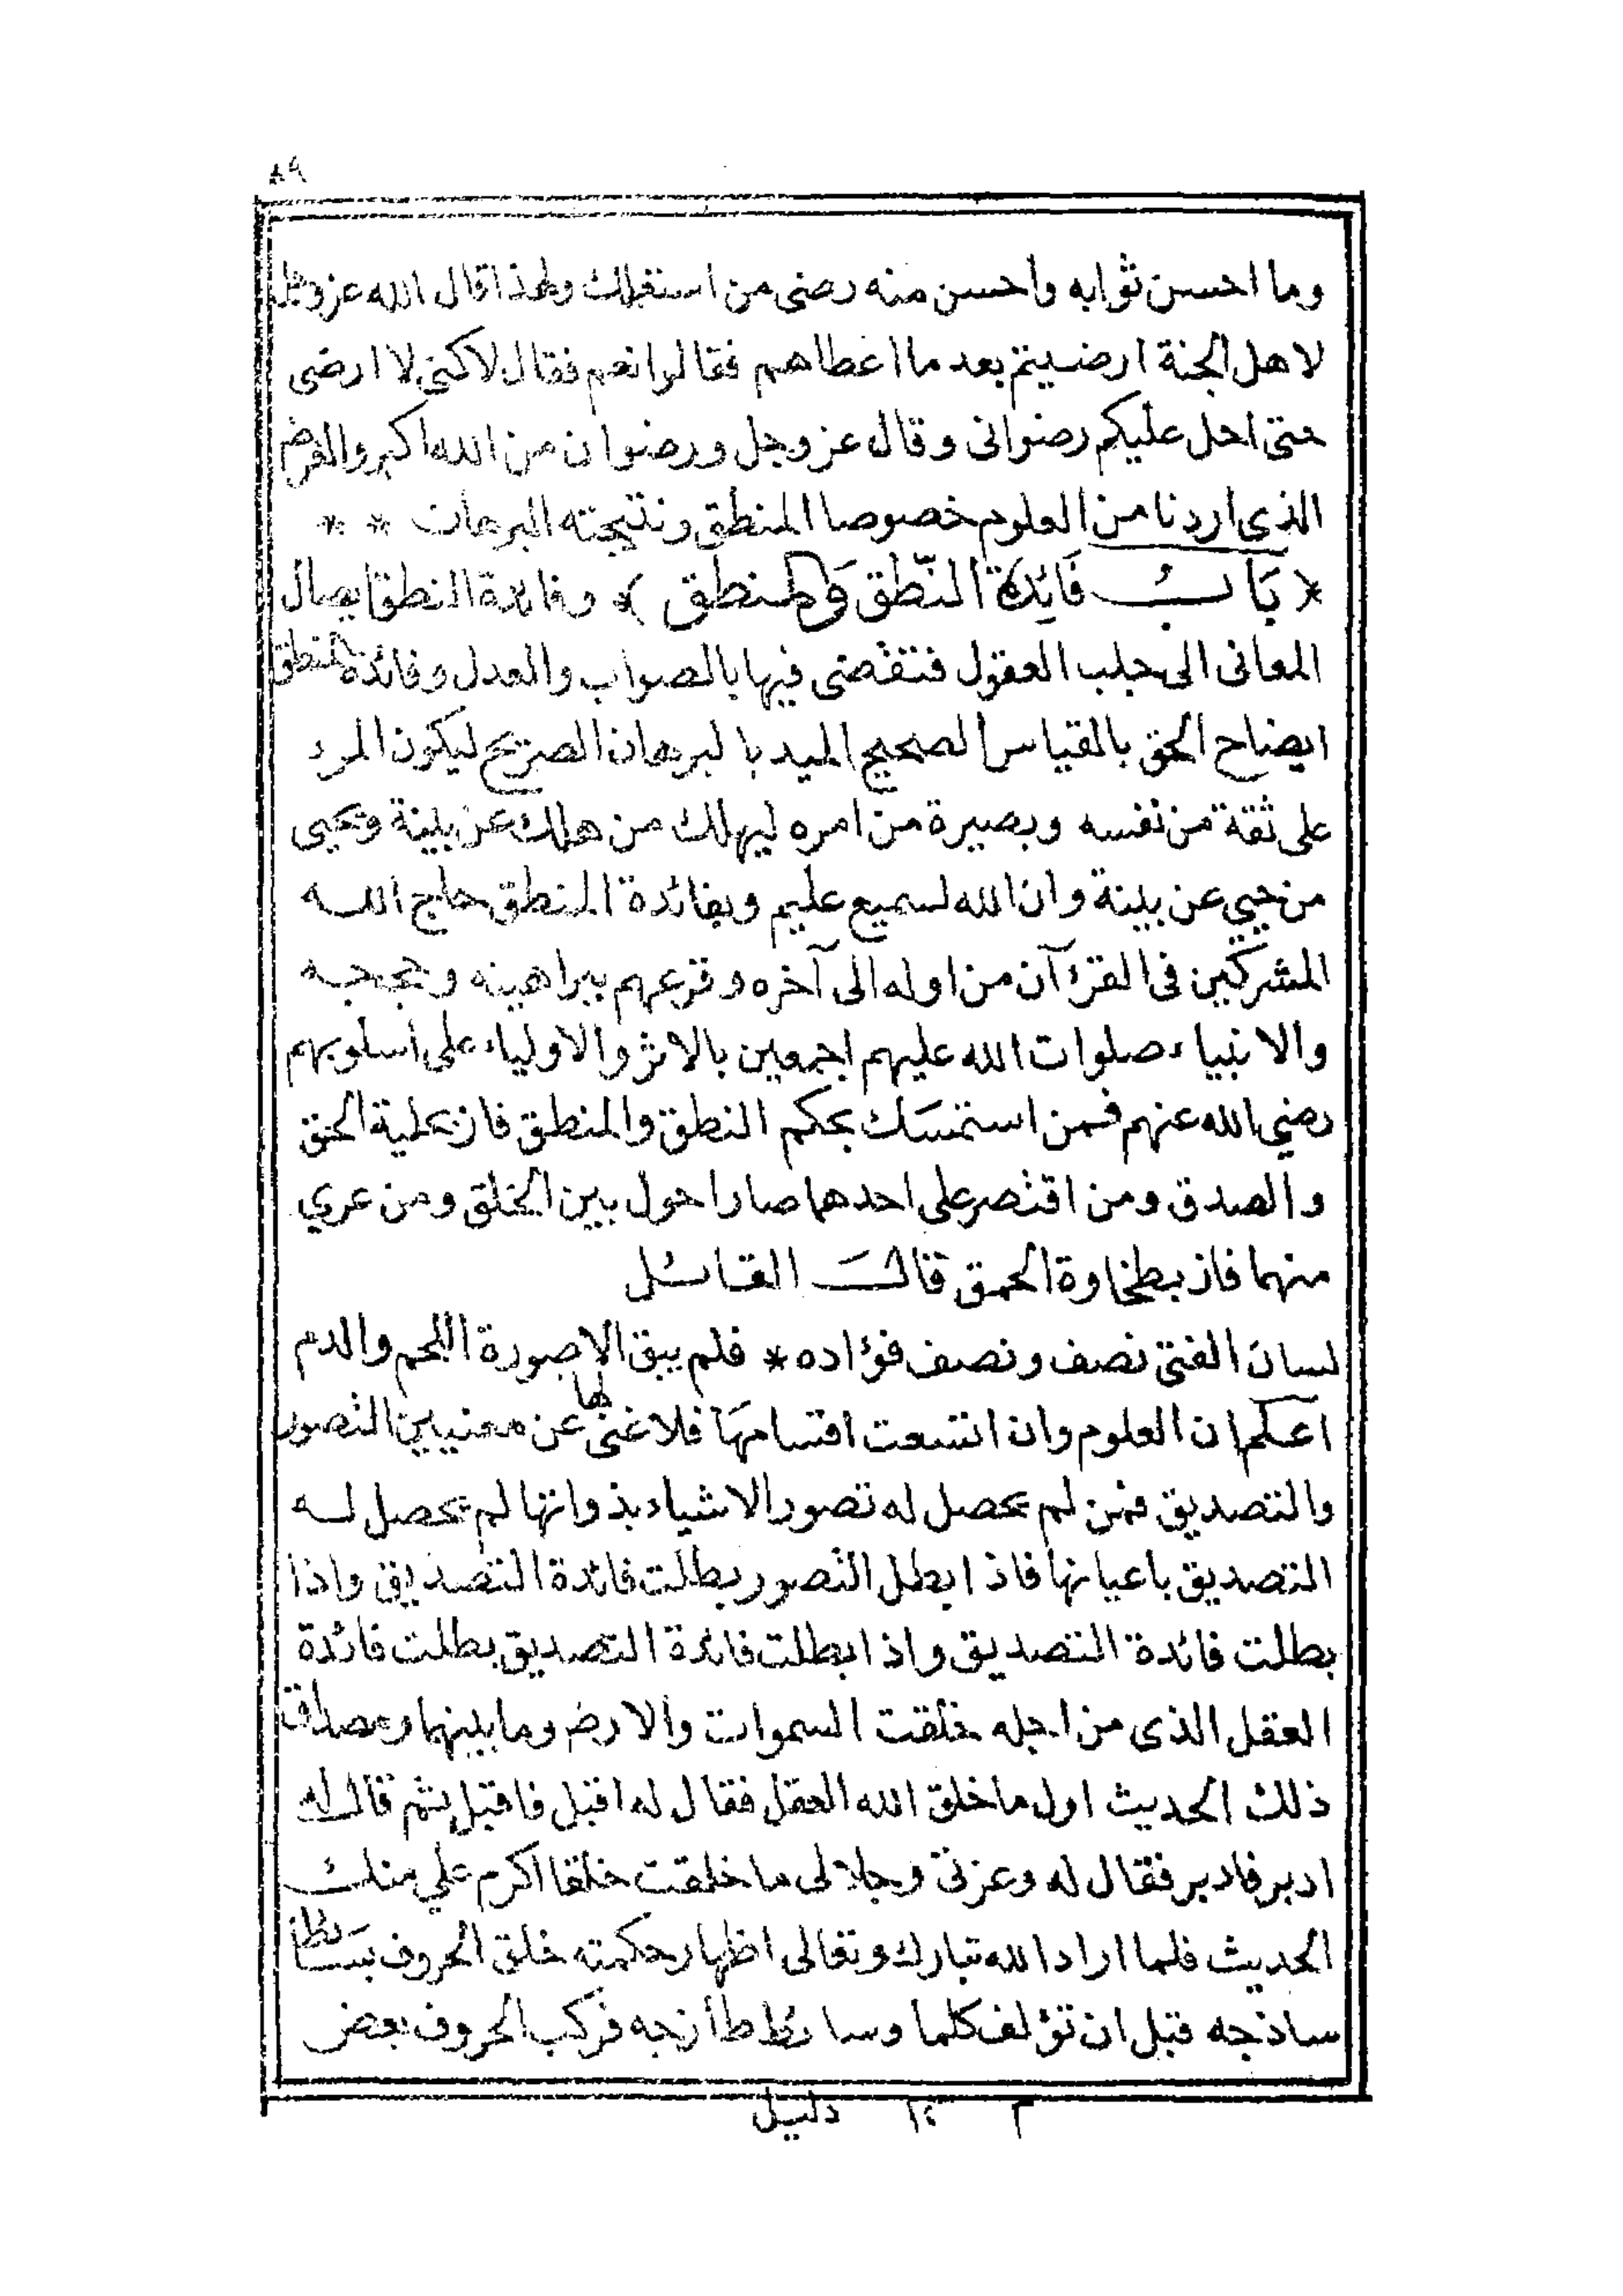 ٨٩
وما احسن ثوابه واحسن منه رضى من استقبلك ولهذا قال الله عزوجل
لاهل الجنة ارضيتم بعد ما اعطاهم فقالوا نعم فقال لاكنى لا ارضى
حتى احل عليكم رضوانى وقال عز وجل ورضوان من الله اكبر والغرض
الذى اردنا من العلوم خصوصا المنطق ونتيجته البرهان * *
* بَابُ فَائِدَة النّطق وَالمنطق * وفائدة النطق ايصال
المعانى الى جلب العقول فتقضى فيها بالصواب والعدل وفائدة المنطق
ايضاح الحق بالقياس الصحيح الميد بالبرهان الصريح ليكون المرء
على ثقة من نفسه وبصيرة من امره ليهلك من هلك عن بينة ويحيى
من حيي عن بينة وان الله لسميع عليم وبفائدة المنطق حاج الله
المشركين فى القرءآن من اوله الى آخره وقرعهم ببراهينه وحججه
والانبياء صلوات الله عليهم اجمعين بالاثر والاولياء على اسلوبهم
رضي الله عنهم فمن استمسَك بحكم النطق والمنطق فاز بحلية الحق
والصدق ومن اقتصر على احدهما صار احول بين الخلق ومن عري
منهما فاز بطخاوة الحمق قالَ القائل
لسان الفتى نصف ونصف فؤاده * فلم يبق الا صورة اللحم والدم
اعلم ان العلوم وان اتسعت اقسامهَا فلا غنى لها عن معنيين التصور
والتصديق فمن لم يحصل له تصور الاشياء بذواتها لم يحصل له
التصديق باعيانها فاذا بطل التصور بطلت فائدة التصديق واذا
بطلت فائدة التصديق واذا بطلت فائدة التصديق بطلت فائدة
العقل الذى من اجله خلقت السموات والارض وما بينهما ومصداق
ذلك الحديث اول ما خلق الله العقل فقال له اقبل فاقبل ثم قال له
ادبر فادبر فقال له وعزتى وجلالى ما خلقت خلقا اكرم علي منك
الحديث فلما اراد الله تبارك وتعالى اظهار حكمته خلق الحروف بسَائطا
ساذجه قبل ان تؤلف كلما وسائط طأزجه فركب الحروف بعض
م ١٢ دليل